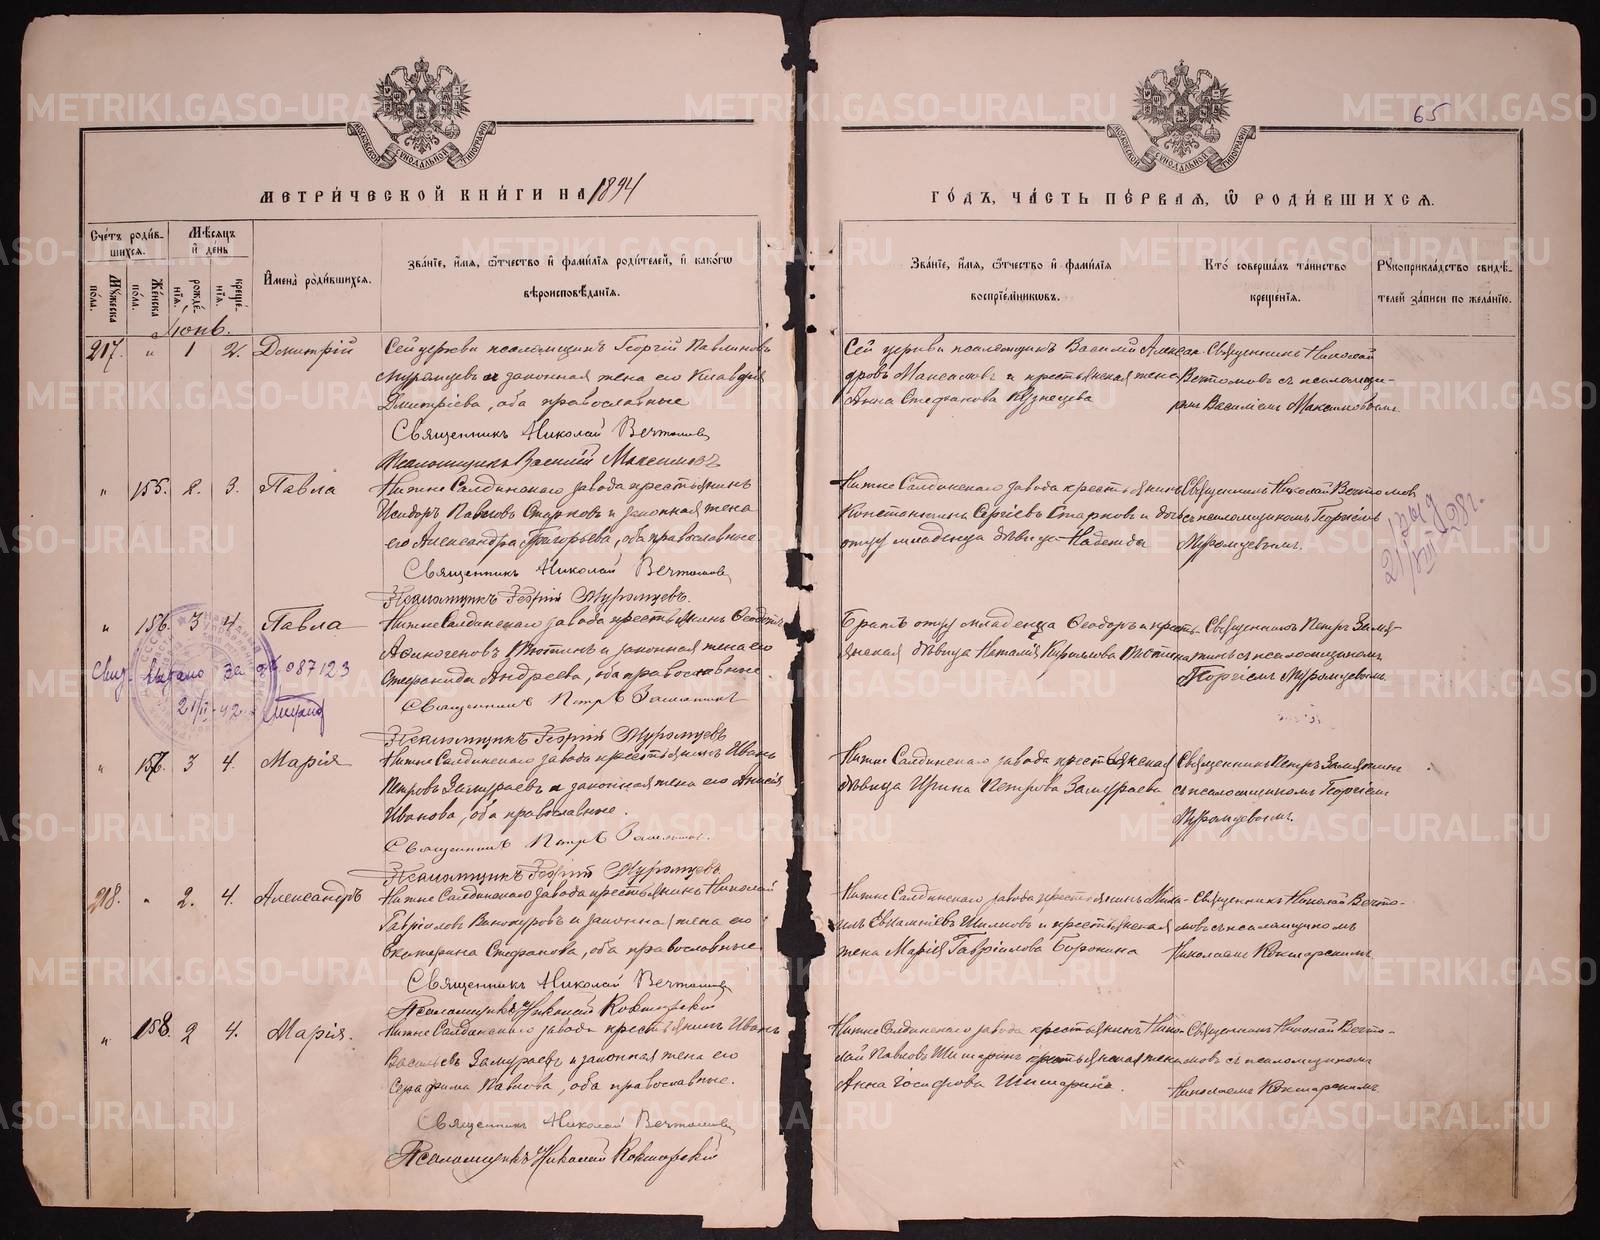 65
МЕТРИ́ЧЕСКОЙ КНИ́ГИ НА 1894
ГО́ДЪ, ЧА́СТЬ ПЕ́РВАЯ, Ѽ РОДИ́ВШИХСЯ.
Сче́тъ роди́в-
шихся.
Мѣ́сяцъ
и҆ де́нь
Мꙋ́жеска
по́ла.
Же́нска
по́ла.
рожде́-
нїѧ.
креще́-
нїѧ.
И҆мена̀ роди́вшихся.
Зва́нїе, и҆́мѧ, ѻ҆́тчество и҆ фами́лїѧ роди́телей, и҆ како́гѡ
вѣроисповѣ́данїѧ.
Зва́нїе, и҆́мѧ, ѻ҆́тчество и҆ фами́лїѧ
воспрїе́мникѡвъ.
Кто̀ соверша́лъ та́инство
креще́нїѧ.
Рꙋкоприкла́дство свидѣ́-
телей за́писи по жела́нїю.
Іюнь.
217. " 1 2. Дмитрій
Сей церкви псаломщикъ Георгій Павлиновъ
Муромцевъ и законная жена его Клавдія
Дмитріева, оба православные
Священникъ Николай Вечтомовъ
Псаломщикъ Василій Максимовъ
Сей церкви псаломщикъ Василій Алексан-
дровъ Максимовъ и крестьянская жена
Анна Стефанова Кузнецова
Священникъ Николай
Вечтомовъ съ псаломщи-
комъ Василіемъ Максимовымъ.
" 155. 2. 3. Павла
Нижне Салдинскаго завода крестьянинъ
Исидоръ Павловъ Старковъ и законная жена
его Александра Григорьева, оба православные
Священникъ Николай Вечтомовъ
Псаломщикъ Георгій Муромцевъ.
Нижне Салдинскаго завода крестьянинъ
Константинъ Сергіевъ Старковъ и дочь
отцу младенца дѣвица Надежда
Священникъ Николай Вечтомовъ
съ псаломщикомъ Георгіемъ
Муромцевымъ.
" 156. 3 4. Павла
Нижне Салдинскаго завода крестьянинъ Ѳеодотъ
и законная жена его
Стефанида Андреева, оба православные.
Священникъ Петръ Замятинъ
Псаломщикъ Георгій Муромцевъ
Братъ отцу младенца Ѳеодоръ и кресть-
янская дѣвица Наталія Кириллова
Священникъ Петръ Замя-
тинъ съ псаломщикомъ
Георгіемъ Муромцевымъ
Свид. выдано за № 087123
21/II-42
" 157. 3 4. Марія
Нижне Салдинскаго завода крестьянинъ Иванъ
Петровъ Замураевъ и законная жена его Анисія
Иванова, оба православные.
Священникъ Петръ Замятинъ.
Псаломщикъ Георгій Муромцевъ
Нижне Салдинскаго завода крестьянская
дѣвица Ирина Петрова Замураева
Священникъ Петръ Замятинъ
съ псаломщикомъ Георгіемъ
Муромцевымъ.
218. " 2. 4. Александръ
Нижне Салдинскаго завода крестьянинъ Николай
Гавріиловъ Винокуровъ и законная жена его
Екатерина Стефанова, оба православные.
Священникъ Николай Вечтомовъ
Псаломщикъ Николай Кокшарскій
Нижне Салдинскаго завода крестьянинъ Миха-
илъ Евгеніевъ и крестьянская
жена Марія Гавріилова
Священникъ Николай Вечто-
мовъ съ псаломщикомъ
Николаемъ Кокшарскимъ.
" 158. 2 4. Марія.
Нижне Салдинскаго завода крестьянинъ Иванъ
Васильевъ Замураевъ и законная жена его
Серафима Павлова, оба православные.
Священникъ Николай Вечтомовъ
Псаломщикъ Николай Кокшарскій
Нижне Салдинскаго завода крестьянинъ Нико-
лай Павловъ Шишаринъ крестьянская жена
Анна Іосифова Шишарина.
Священникъ Николай Вечто-
мовъ съ псаломщикомъ
Николаемъ Кокшарскимъ.
METRIKI.GASO-URAL.RU